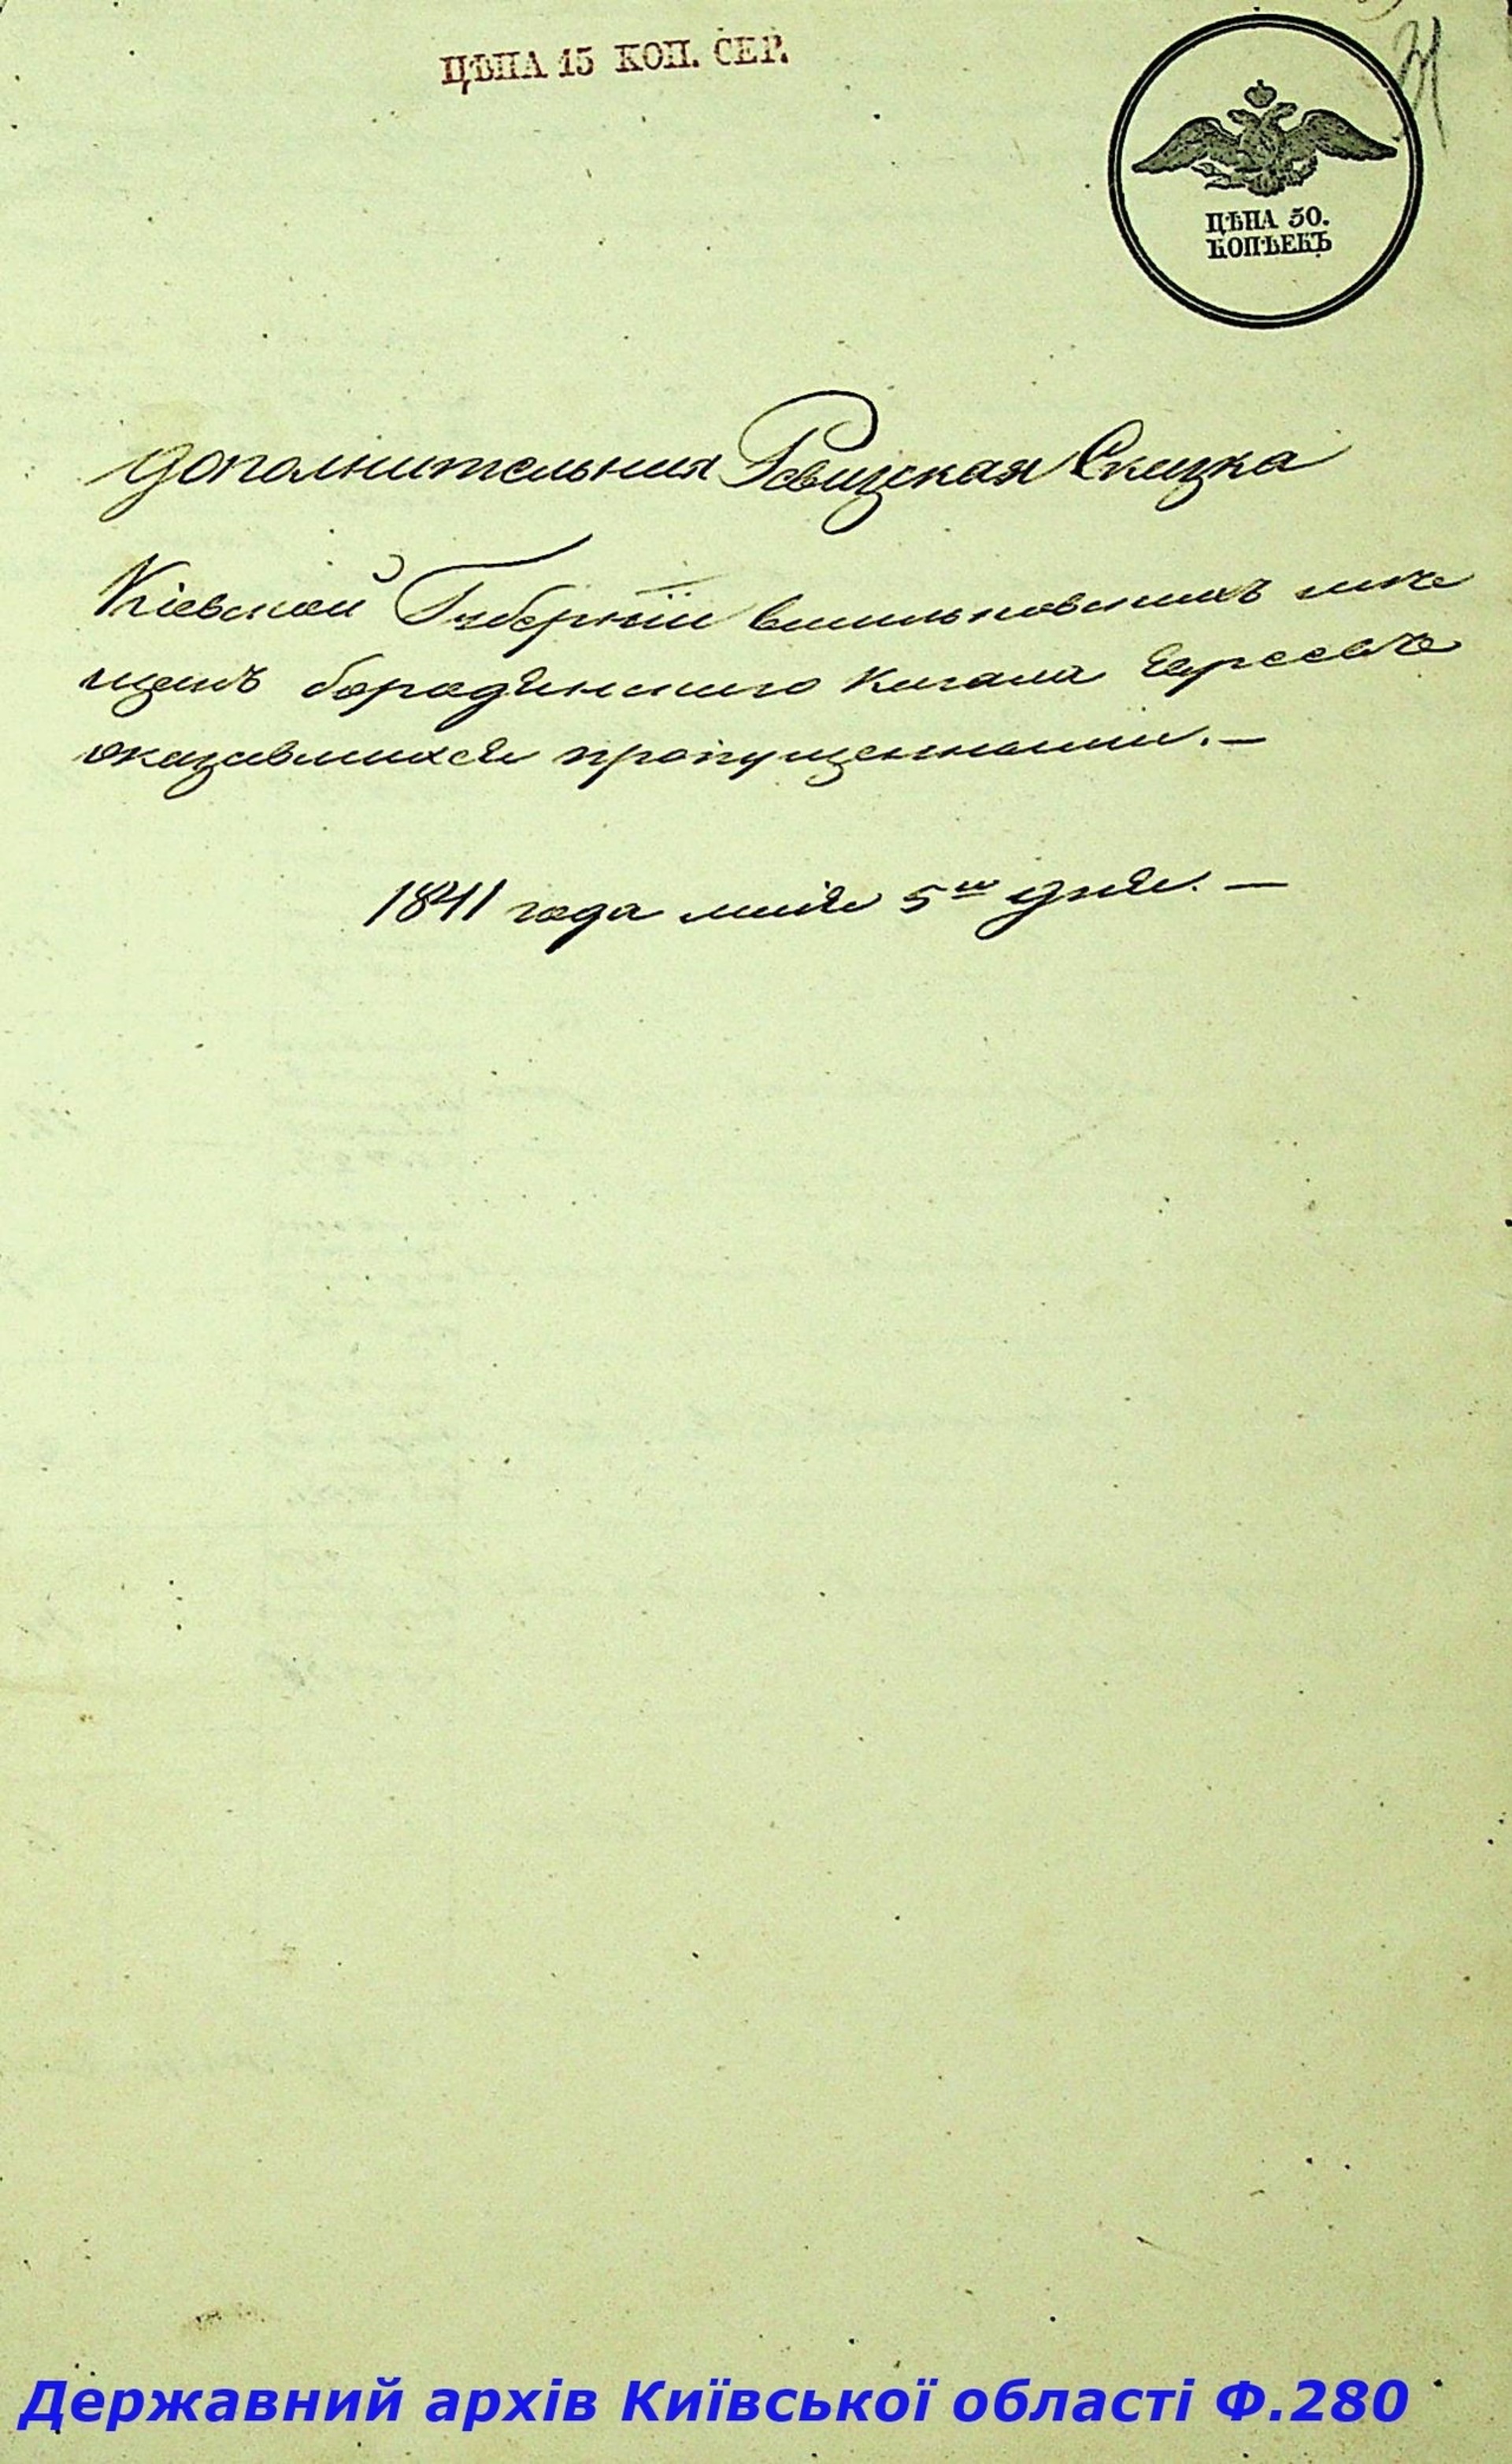 ЦѢНА 15 КОП. СЕР.
31
ЦѢНА 50.
КОПѢЕКЪ
Дополнительная Ревизская Сказка
Кіевской Губерніи васильковскихъ меж
щанъ кагала Евреевъ
оказавшихся пропущенными. —
1841 года маія 5го дня. —
Державний архів Київської області Ф.280